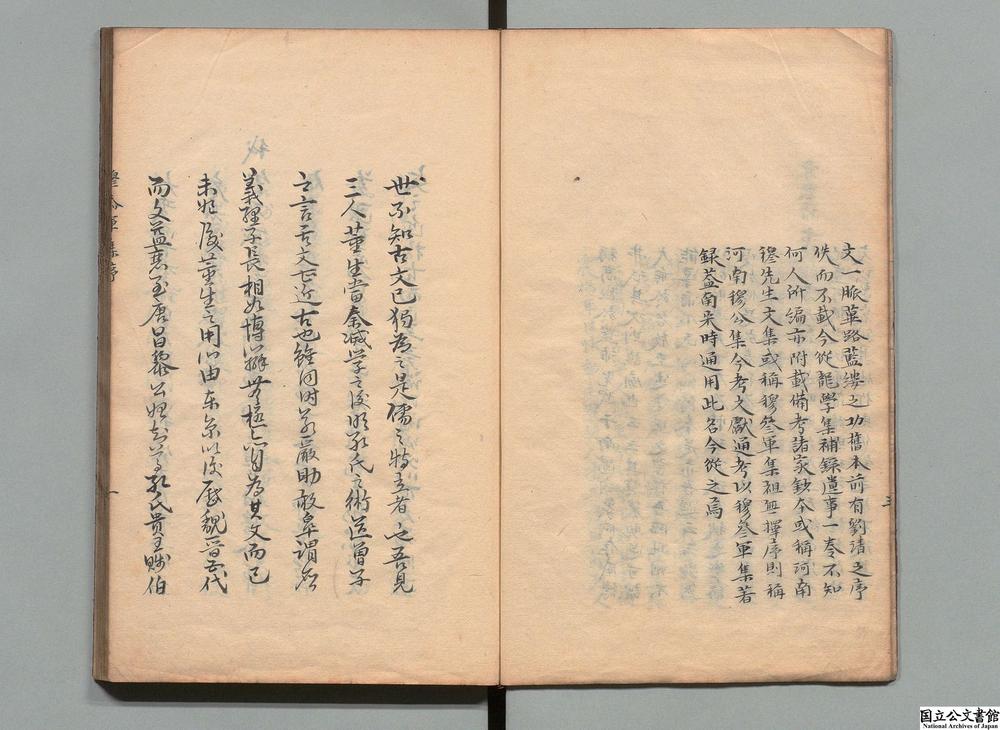 文一脈蓽路藍縷之功舊本前有劉清之序
佚而不載今從龍學集補錄遺事一卷不知
何人所編亦附載備考諸家鈔本或稱河南
穆先生文集或稱穆叅軍集祖無擇序則稱
河南穆公集今考文獻通考以穆叅軍集著
録葢南宋時通用此名今從之焉
三
世不知古文已獨為之是儒之特立者也吾見
三人董生當秦滅學之後明孔氏之術道曾子
之言言文章近古也雖同時若嚴助枚皐謂名
義理子長相如博辯其極亦自為其文而已
未始及董生之用心由東京以後歷魏晉五代
而文益衰至唐昌黎公始知尊孔氏貴王賤伯
穆叅軍集序
一
国立公文書館
National Archives of Japan